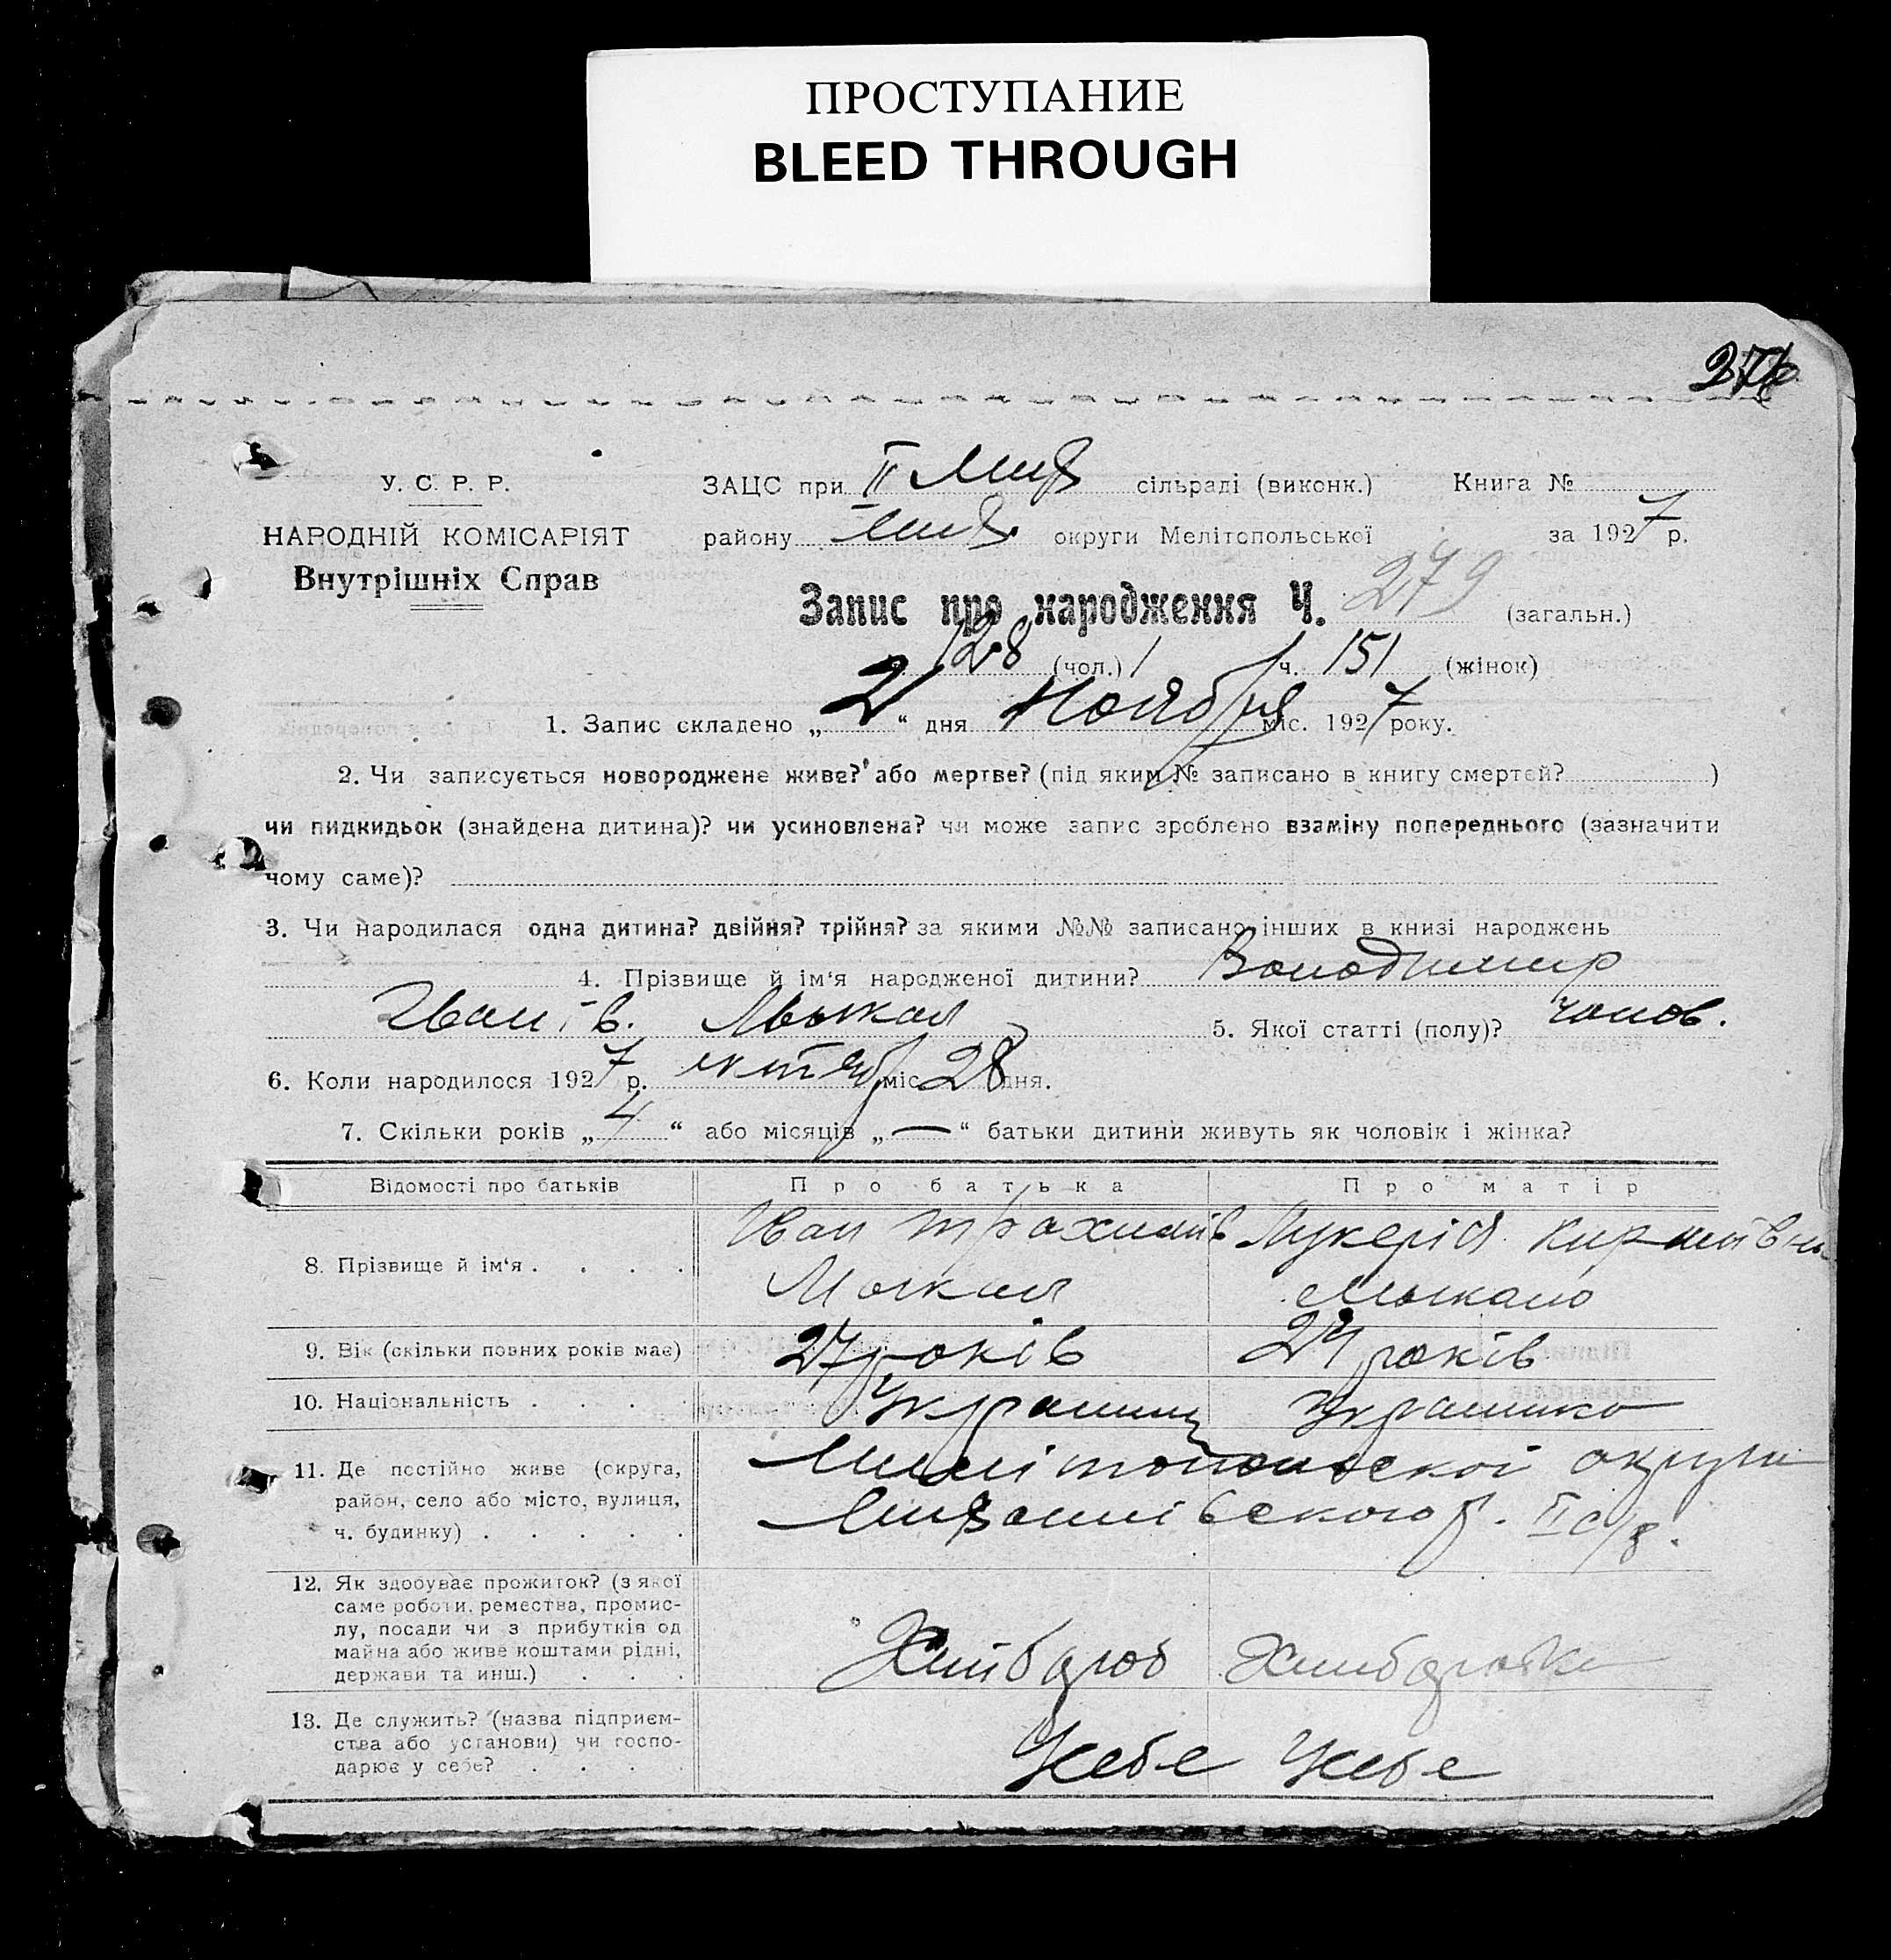 ПРОСТУПАНИЕ
BLEED THROUGH
У. С. Р. Р.
НАРОДНІЙ КОМІСАРІЯТ
Внутрішніх Справ
ЗАЦС при II сільраді (виконк.) Книга №
району округи Мелітопольської за 1927 р.
Запис про народження Ч. 279 (загальн.)
128 (чол.) ч. 151 (жінок)
1. Запис складено „2“ дня Ноября міс. 1927 року.
2. Чи записується новороджене живе? або мертве? (під яким № записано в книгу смертей? )
чи пидкидьок (знайдена дитина)? чи усиновлена? чи може запис зроблено взаміну попереднього (зазначити
чому саме)?
3. Чи народилася одна дитина? двійня? трійня? за якими №№ записано інших в книзі народжень
4. Прізвище й ім‘я народженої дитини? Володимир
Іванів. 5. Якої статті (полу)? чолов.
6. Коли народилося 1927 р. міс 28 дня.
7. Скільки років „4“ або місяців „—“ батьки дитини живуть як чоловік і жінка?
Відомості про батьків Про батька Про матір
8. Прізвище й ім‘я . . . . Іван Лукерія
9. Вік (скільки повних років має) 27 років 24 років
10. Національність . . . .
11. Де постійно живе (округа,
район, село або місто, вулиця,
ч. будинку) . . . . .
Мелітопольскої округи
II с/р.
12. Як здобуває прожиток? (з якої
саме роботи, ремества, промис-
лу, посади чи з прибутків од
майна або живе коштами рідні,
держави та инш.) . . .
Хлибороб Хлиборобка
13. Де служить? (назва підприєм-
ства або установи) чи госпо-
дарює у себе? . . . .
Усебе Усебе